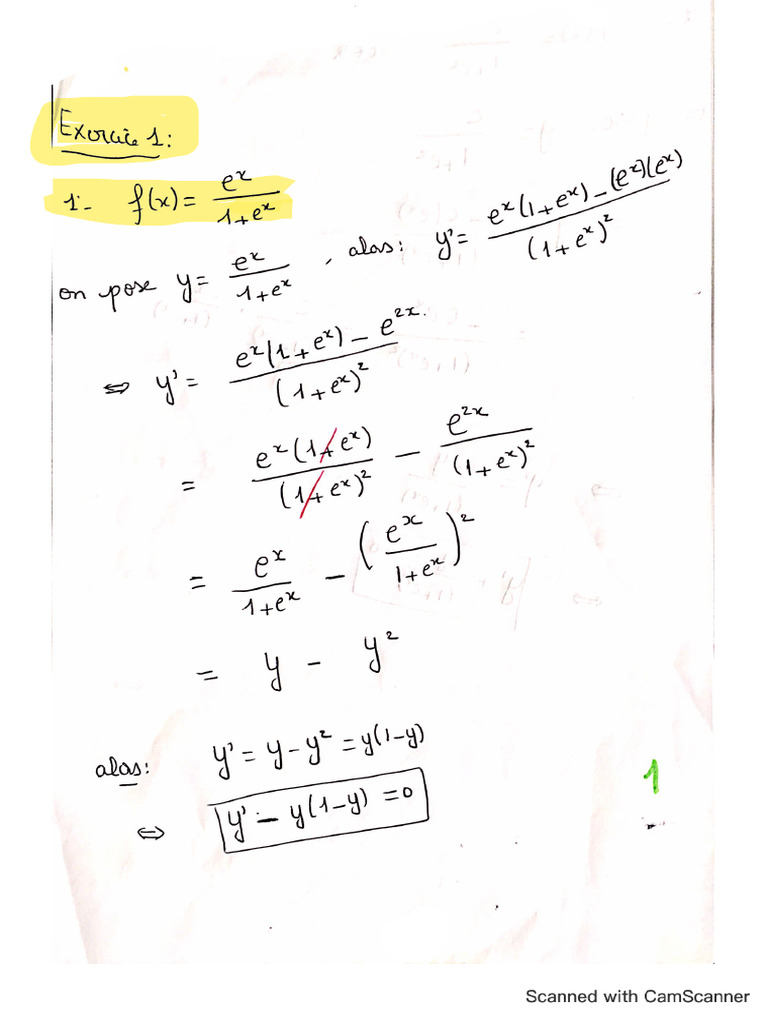 Exercice 1:
1- f(x) = e^x / (1+e^x)
on pose y = e^x / (1+e^x) , alors: y' = (e^x(1+e^x) - (e^x)(e^x)) / (1+e^x)^2
⇔ y' = (e^x(1+e^x) - e^{2x}) / (1+e^x)^2
= e^x(1+e^x) / (1+e^x)^2 - e^{2x} / (1+e^x)^2
= e^x / (1+e^x) - (e^x / (1+e^x))^2
= y - y^2
alors: y' = y - y^2 = y(1-y)
⇔ y' - y(1-y) = 0
1
Scanned with CamScanner